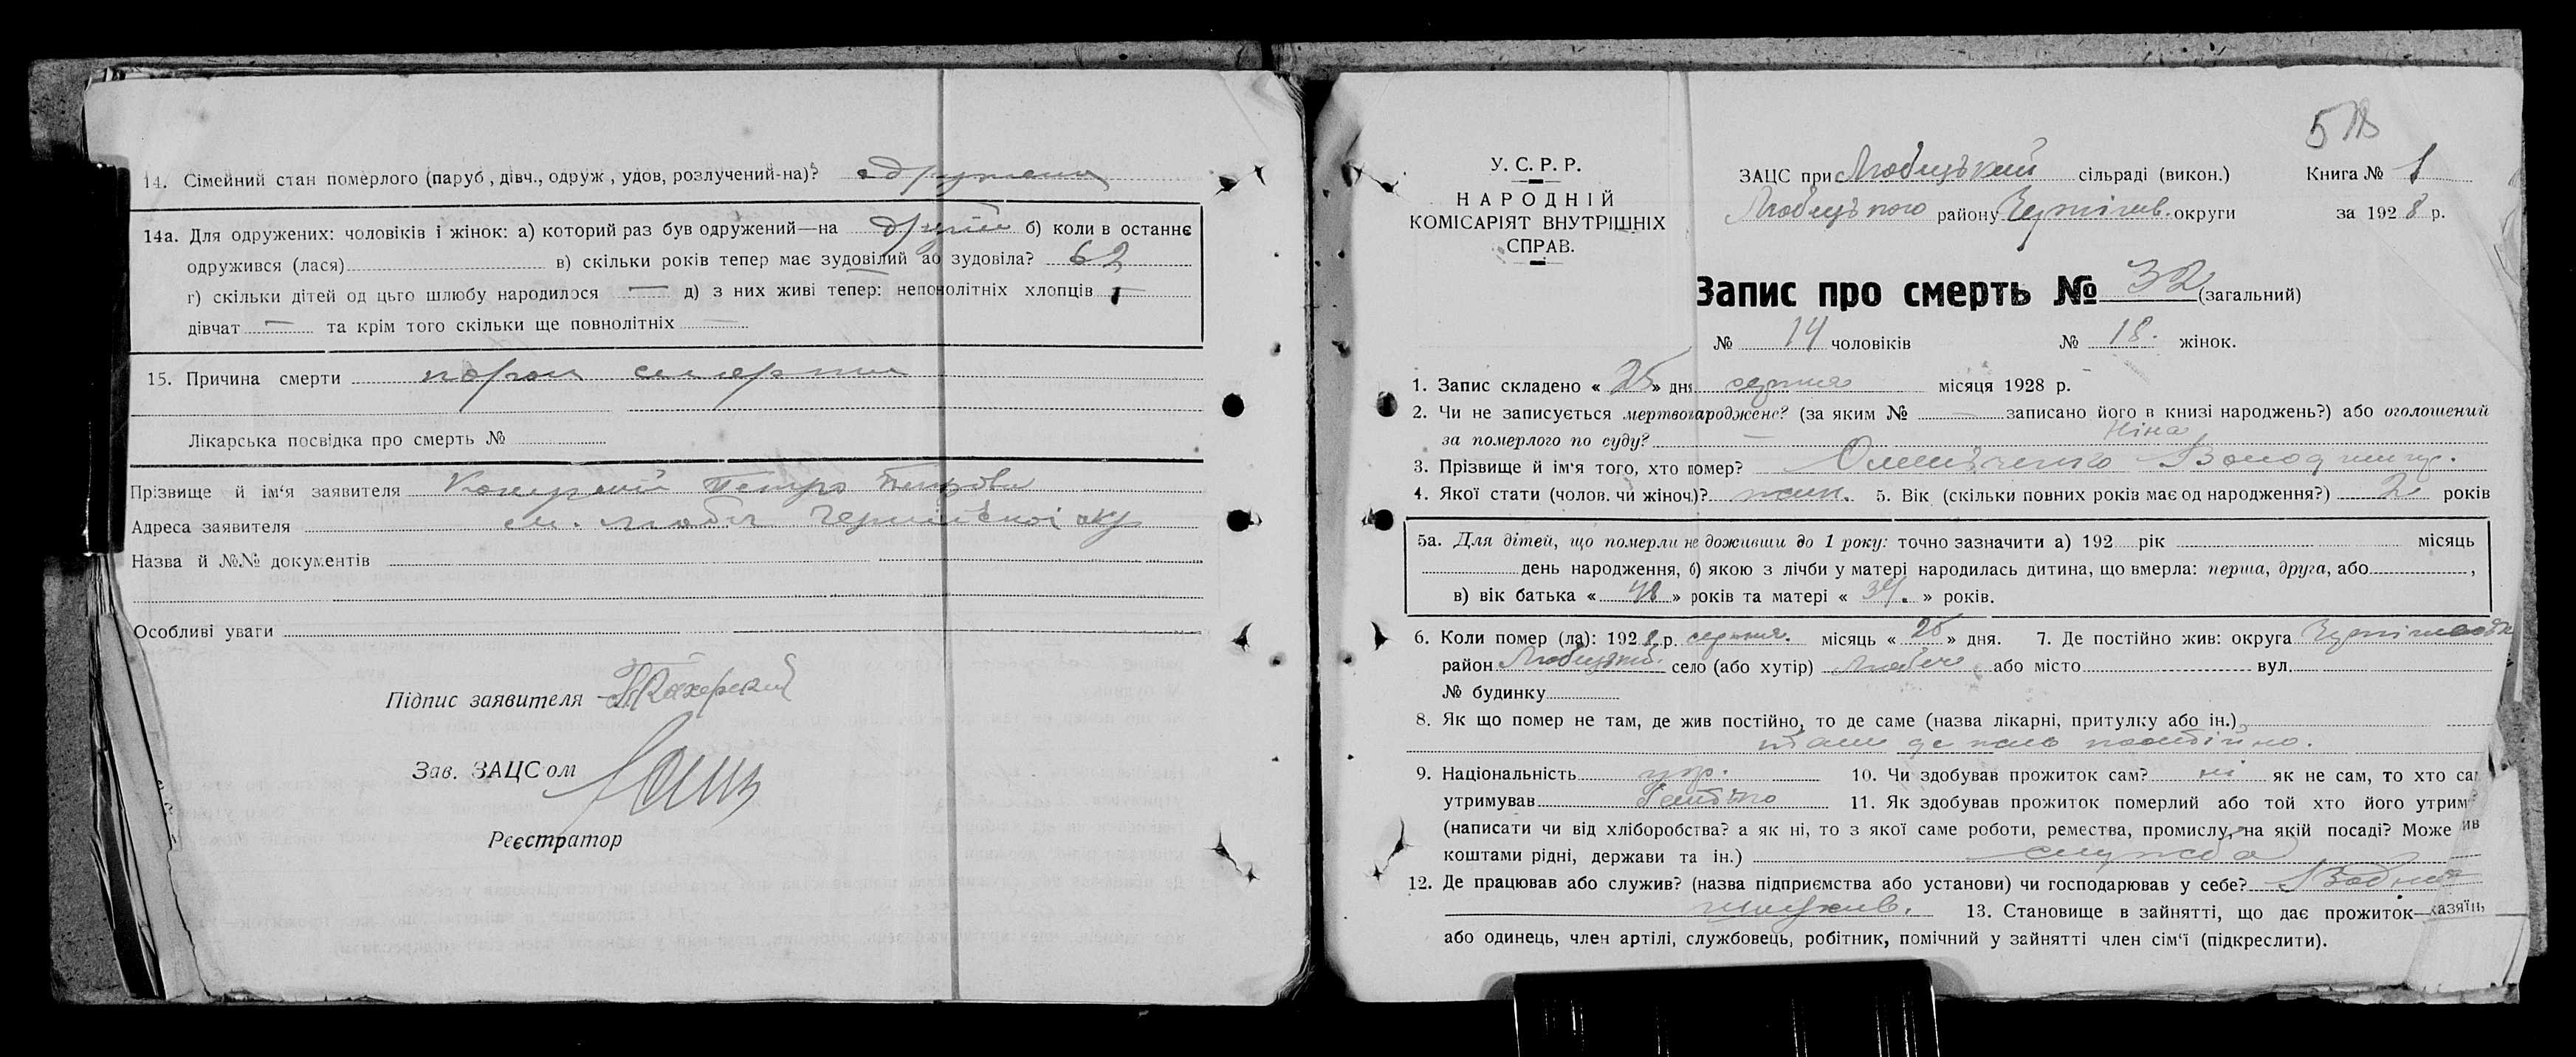 14. Сімейний стан померлого (паруб., дівч., одруж., удов, розлучений-на)?
14а. Для одружених: чоловіків і жінок: а) который раз був одружений—на другій б) коли в останнє
одружився (лася) в) скільки років тепер має зудовілий або зудовіла? 62
г) скільки дітей од цього шлюбу народилося — д) з них живі тепер: неповнолітніх хлопців
дівчат — та крім того скільки ще повнолітніх —
15. Причина смерти
Лікарська посвідка про смерть №
Прізвище й ім'я заявителя Петро
Адреса заявителя м. Любеч окр
Назва й №№ документів
Особливі уваги
Підпис заявителя
Зав. ЗАЦСом
Реєстратор
У. С. Р. Р.
НАРОДНІЙ
КОМІСАРІЯТ ВНУТРІШНІХ
СПРАВ.
ЗАЦС при Любецькій сільраді (викон.) Книга № 1
Любецького району Чернігів. округи за 1928 р.
Запис про смерть № 32 (загальний)
№ 14 чоловіків № 18. жінок.
1. Запис складено « 25 » дня серпня місяця 1928 р.
2. Чи не записується мертвонароджене? (за яким № — записано його в книзі народжень?) або оголошений
за померлого по суду? —
Ніна
3. Прізвище й ім'я того, хто помер?
4. Якої стати (чолов. чи жіноч.)? жін. 5. Вік (скільки повних років має од народження?) 2 років
5а. Для дітей, що померли не доживши до 1 року: точно зазначити а) 192 рік місяць
день народження, б) якою з лічби у матері народилась дитина, що вмерла: перша, друга, або ,
в) вік батька « 48 » років та матері « 34. » років.
6. Коли помер (ла): 1928 р. серпня. місяць « 25 » дня. 7. Де постійно жив: округа
район село (або хутір) Любеч або місто вул.
№ будинку
8. Як що помер не там, де жив постійно, то де саме (назва лікарні, притулку або ін.)
там де жив постійно.
9. Національність укр. 10. Чи здобував прожиток сам? ні як не сам, то хто са
утримував батько 11. Як здобував прожиток померлий або той хто його утрим
(написати чи від хліборобства? а як ні, то з якої саме роботи, ремества, промислу, на якій посаді? Може
коштами рідні, держави та ін.) служба
12. Де працював або служив? (назва підприємства або установи) чи господарював у себе?
13. Становище в зайнятті, що дає прожиток—хазяїн,
або одинець, член артілі, службовець, робітник, помічний у зайнятті член сім'ї (підкреслити).